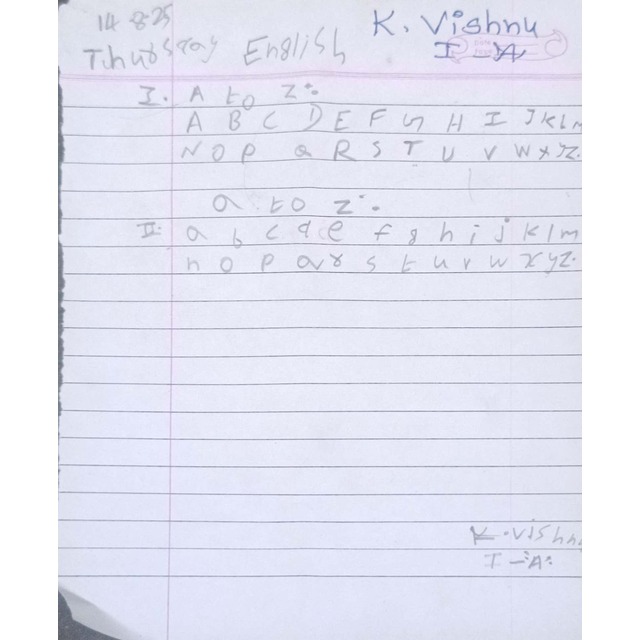 14-8-25
K. Vishnu
Thursday English
I - A
I. A to Z:
A B C D E F G H I J K L m
N O P Q R S T U V W X Y Z.
a to z:
II. a b c d e f g h i j k l m
n o p q r s t u v w x y z.
K. Vishnu
I - A: